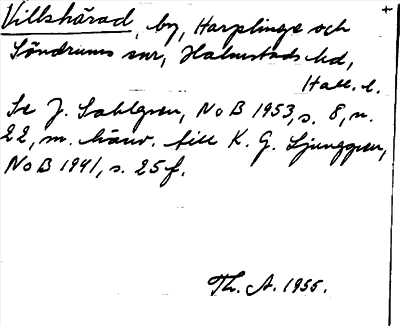 Villshärad, by, Harplinge och
Söndrums snr, Halmstads hd,
Hall. l.
Se J. Sahlgren, NoB 1953, s. 8, n.
22, m. hänv. till K. G. Ljunggren,
NoB 1941, s. 25 f.
Th. A. 1955.